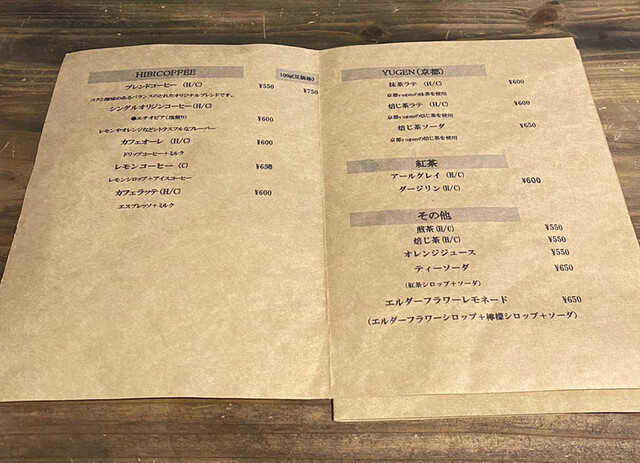 HIBICOFFEE
100g(豆価格)
ブレンドコーヒー (H/C) ¥550 ¥750
コクと酸味のあるバランスのとれたオリジナルブレンドです。
シングルオリジンコーヒー(H/C)
●エチオピア(浅煎り) ¥600
レモンやオレンジなどシトラスフルなフレーバー
カフェオーレ (H/C) ¥600
ドリップコーヒー+ミルク
レモンコーヒー (C) ¥650
レモンシロップ+アイスコーヒー
カフェラッテ(H/C) ¥600
エスプレッソ+ミルク
YUGEN(京都)
抹茶ラテ (H/C) ¥600
京都yugenの抹茶を使用
焙じ茶ラテ (H/C) ¥600
京都yugenの焙じ茶を使用
焙じ茶ソーダ ¥650
京都yugenの焙じ茶を使用
紅茶
アールグレイ (H/C)
ダージリン(H/C) ¥600
その他
煎茶(H/C) ¥550
焙じ茶(H/C) ¥550
オレンジジュース ¥550
ティーソーダ ¥650
(紅茶シロップ+ソーダ)
エルダーフラワーレモネード ¥650
(エルダーフラワーシロップ+檸檬シロップ+ソーダ)